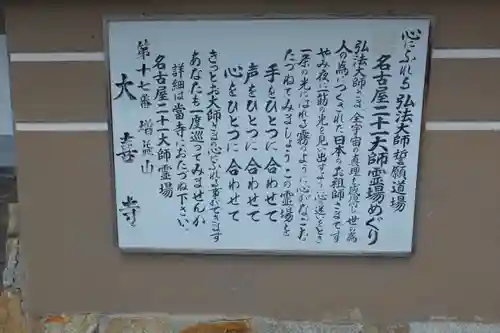 心にふれる 弘法大師誓願道場
名古屋二十一大師霊場めぐり
弘法大師さまは全宇宙の真理を感得され世の為
人の為につくされた日本のお祖師さまです
やみ夜に一筋の光を見い出すように心迷いしとき
一条の光にはれる霧のように心がなごむ
たづねてみましょうこの霊場を
手をひとつに合わせて
声をひとつに合わせて
心をひとつに合わせて
きっとお大師さまの心にふれる事ができます
あなたも一度巡ってみませんか
詳細は當寺におたづね下さい。
名古屋二十一大師霊場
第十七番 増益山
大喜寺